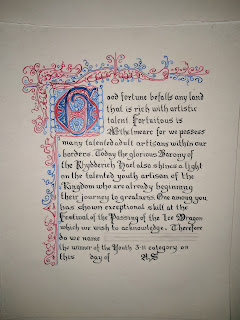 Good fortune befalls any land
that is rich with artistic
talent. Fortuitous is
Æthelmearc for we possess
many talented adult artisans within our
borders. Today the glorious Barony of
the Rhydderich Hael also shines a light
on the talented youth artisan of the
Kingdom who are already beginning
their journey to greatness. One among you
has shown exceptional skill at the
Festival of the Passing of the Ice Dragon
which we wish to acknowledge. Therefore
do we name
the winner of the Youth 3-11 category on
this day of A.S